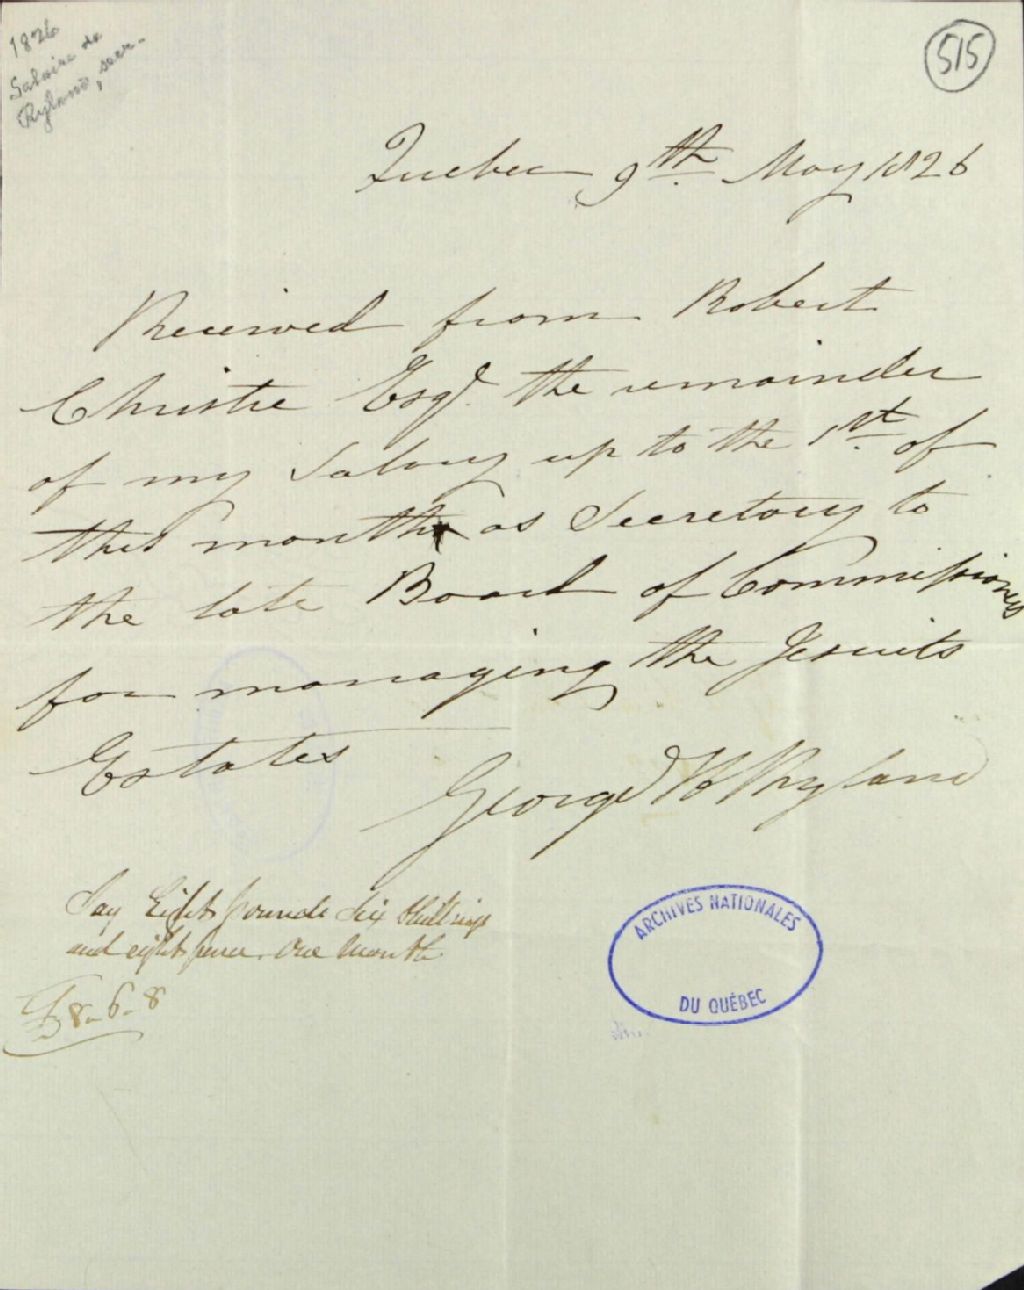 1826
Salaire de
Ryland, secr.
515
Quebec 9th May 1826
Received from Robert
Christie Esqr. the remainder
of my Salary up to the 1st. of
this month as Secretary to
the late Board of Commissioners
for managing the Jesuits
Estates
George H Ryland
Say Eight pounds Six Shillings
and eight pence. One Month
£8-6-8
ARCHIVES NATIONALES
DU QUÉBEC